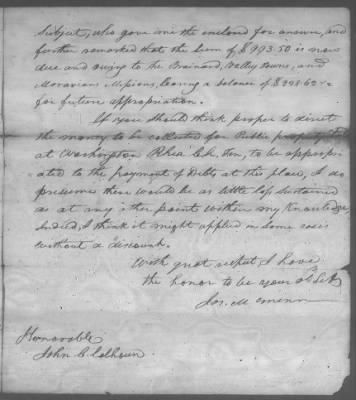 Subject, who gave me the enclosed for answer, and
further remarked that the sum of $993.50 is now
due and owing to the Brainard, Valley towns, and
Moravian Missions, leaving a balance of
for future appropriation.
If you should think proper to direct
the money to be collected for Public property
at Washington Rhea Ten, to be appropri
ated to the payment of Debts at this place, I do
presume there would be as little loss sustained
as at any other point within my Knowledge
Indeed, I think it might applied in some cases
without a discount.
With great respect, I have
the honor to be your Ob Set
Jos. McMinn
Honorable
John C Calhoun